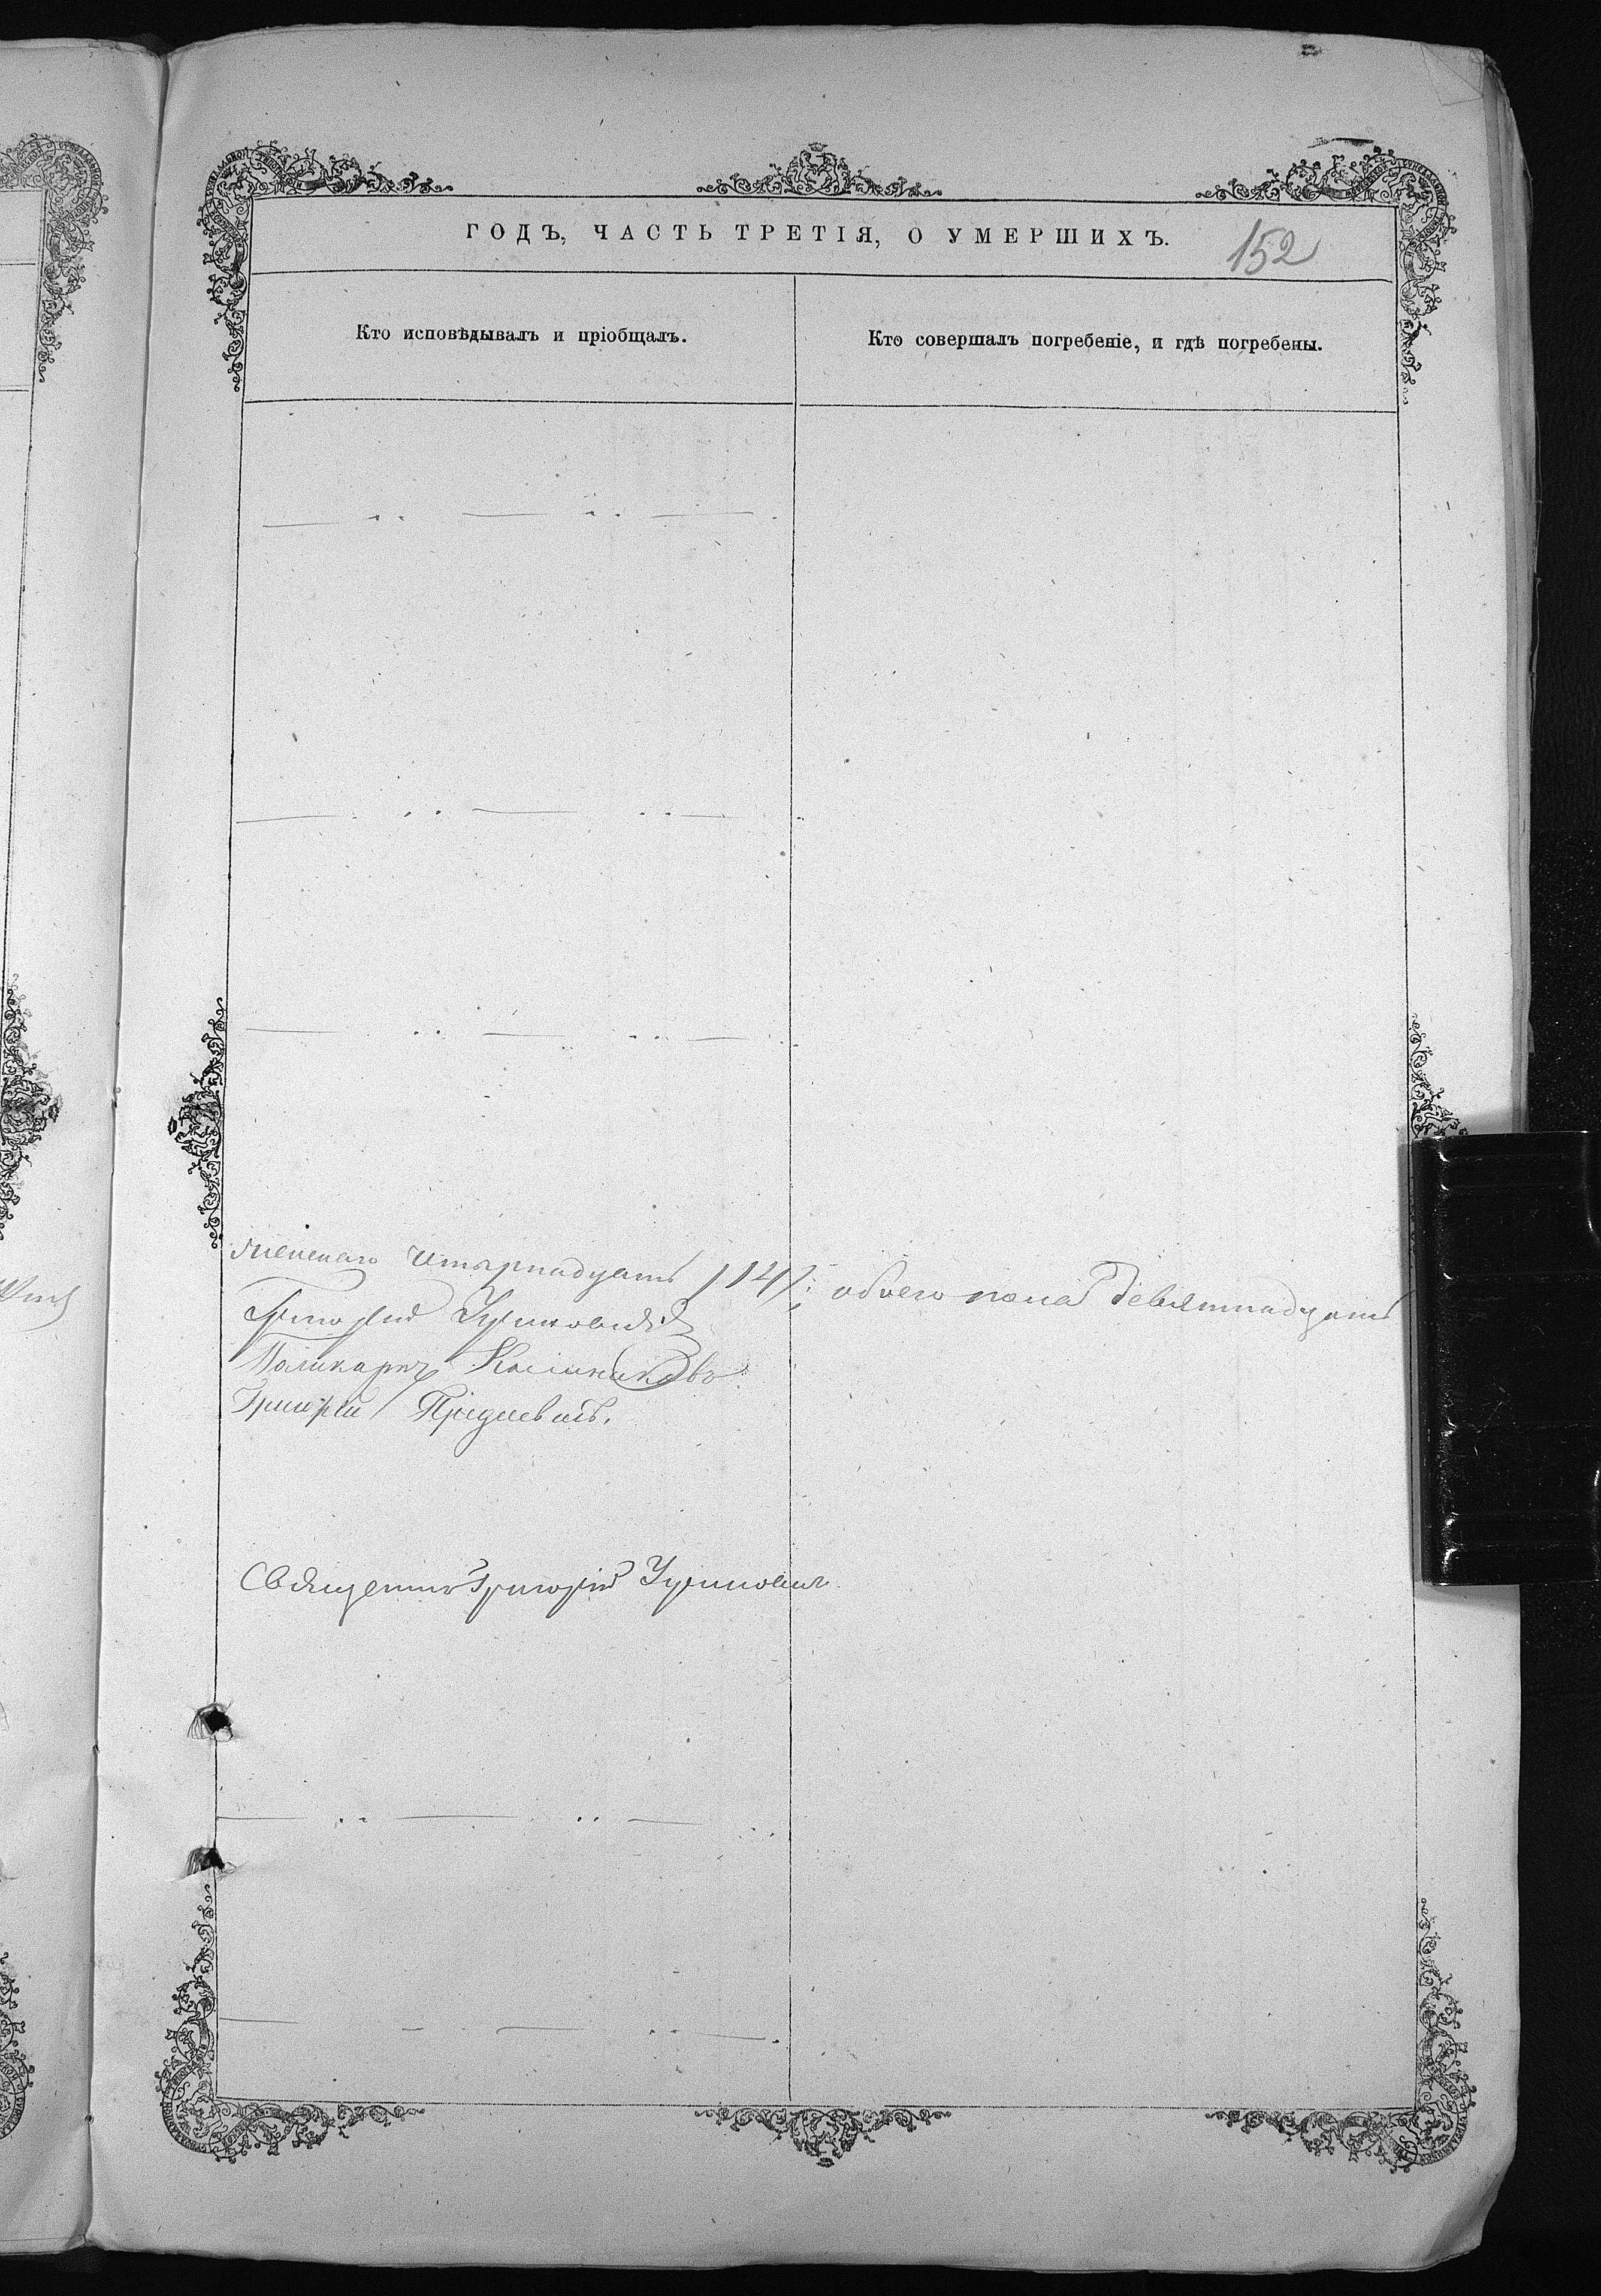 ГОДЪ, ЧАСТЬ ТРЕТІЯ, О УМЕРШИХЪ.
152
Кто исповѣдывалъ и пріобщалъ.
Кто совершалъ погребеніе, и гдѣ погребены.
женскаго четырнадцать /14/; обоего пола девятнадцать
Григорій
Поликарпъ
Григорій
Священникъ Григорій